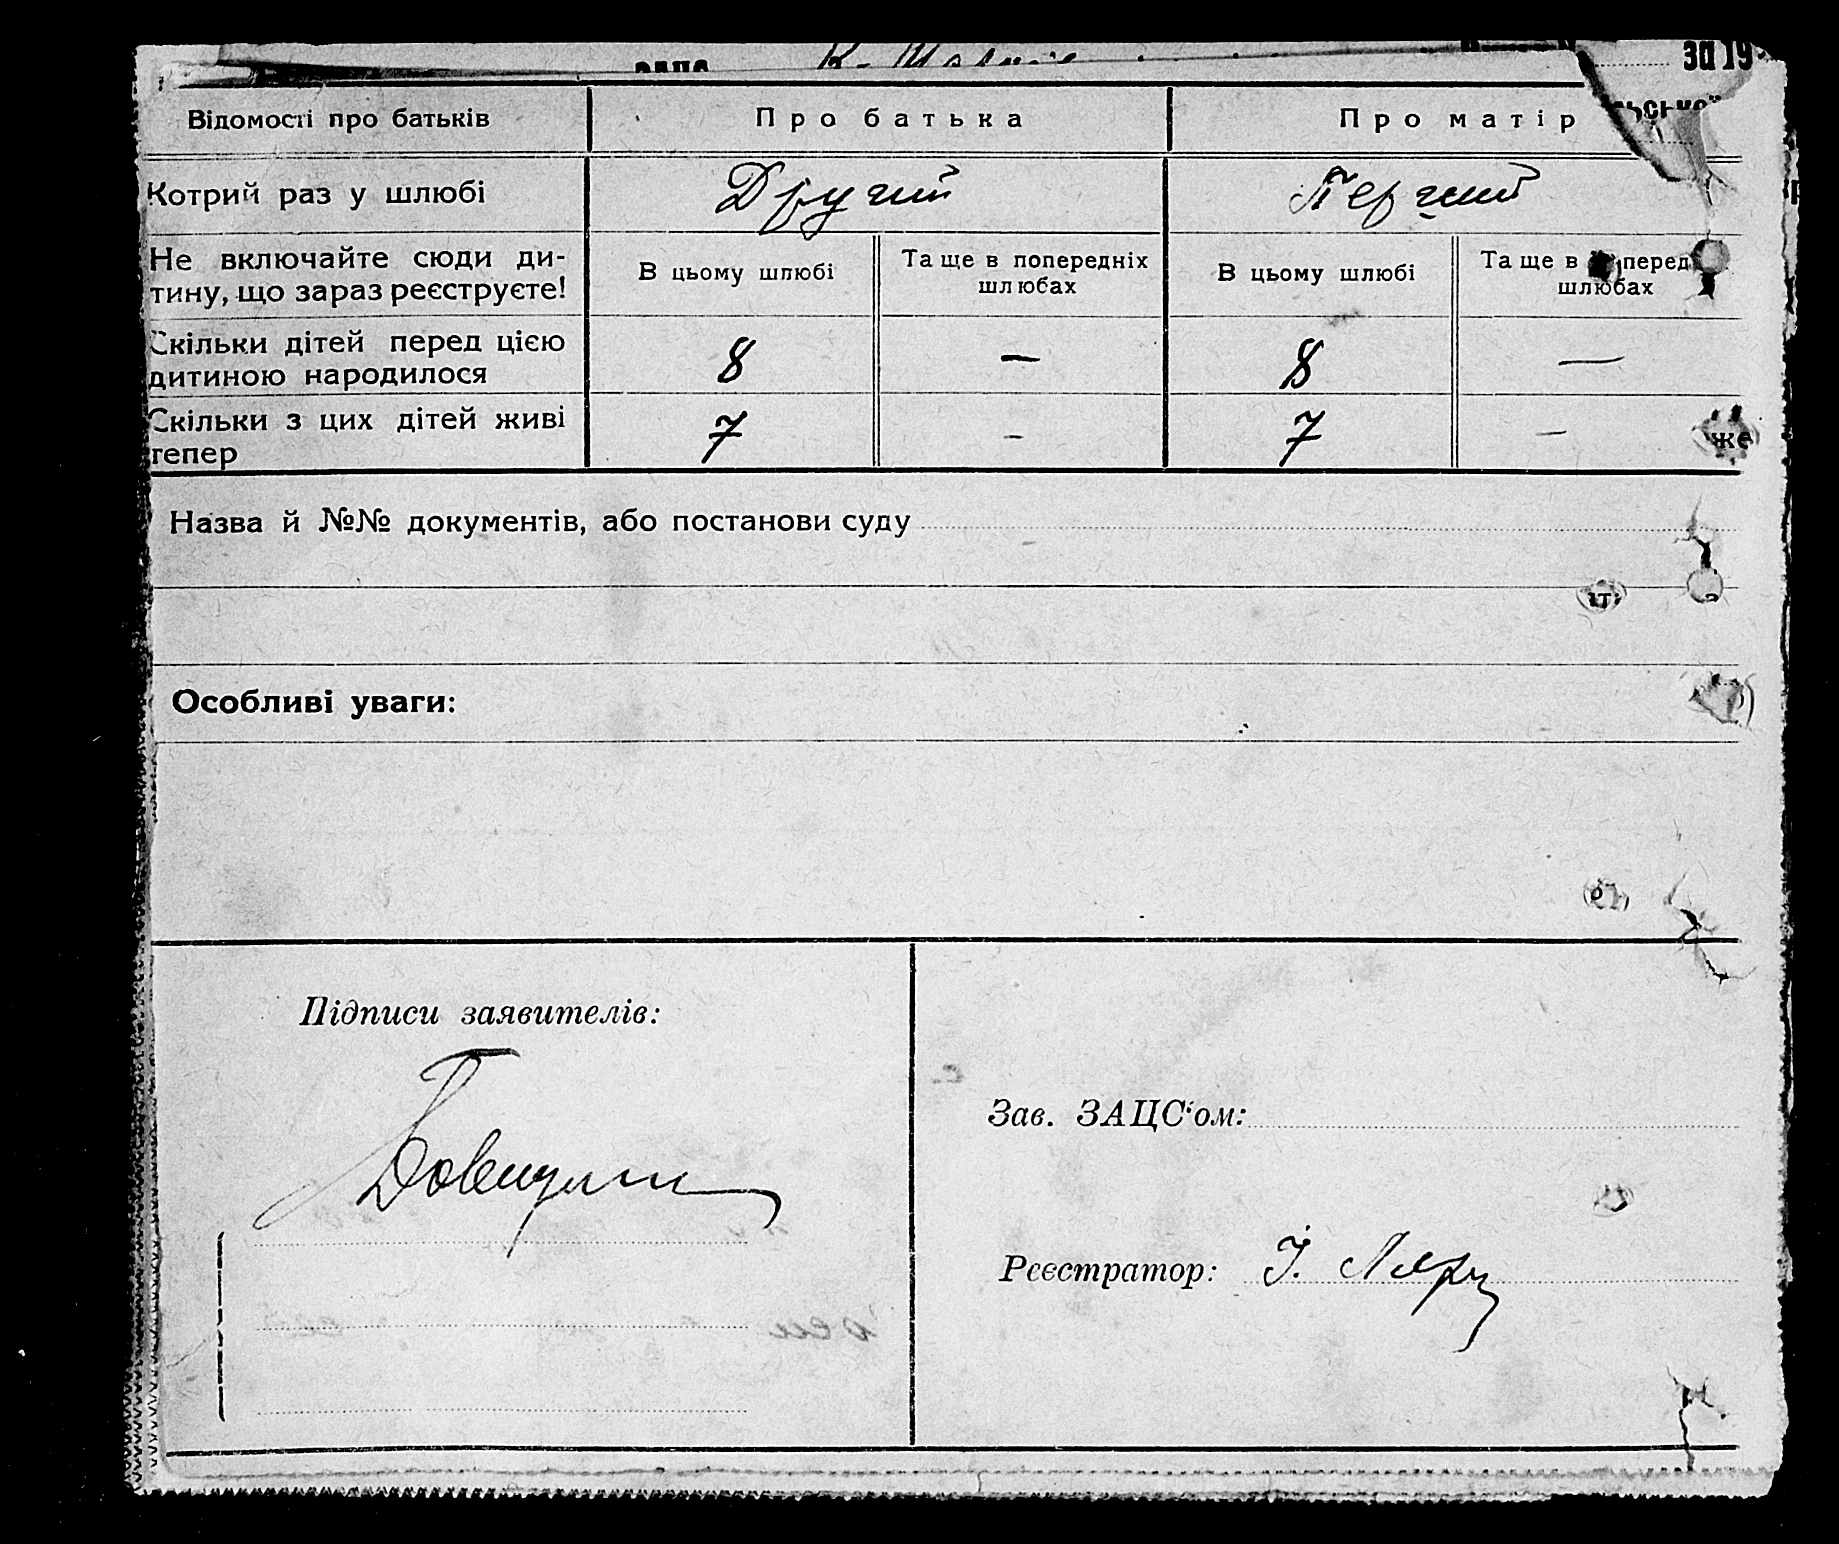 за 19
Відомості про батьків Про батька Про матір
Котрий раз у шлюбі Другий Перший
Не включайте сюди ди-
тину, що зараз реєструєте!
В цьому шлюбі Та ще в попередніх
шлюбах
В цьому шлюбі Та ще в
шлюбах
Скільки дітей перед цією
дитиною народилося
8 — 8 —
Скільки з цих дітей живі
тепер
7 - 7 —
же
Назва й №№ документів, або постанови суду
Особливі уваги:
Підписи заявителів:
Зав. ЗАЦС'ом:
Реєстратор: І.